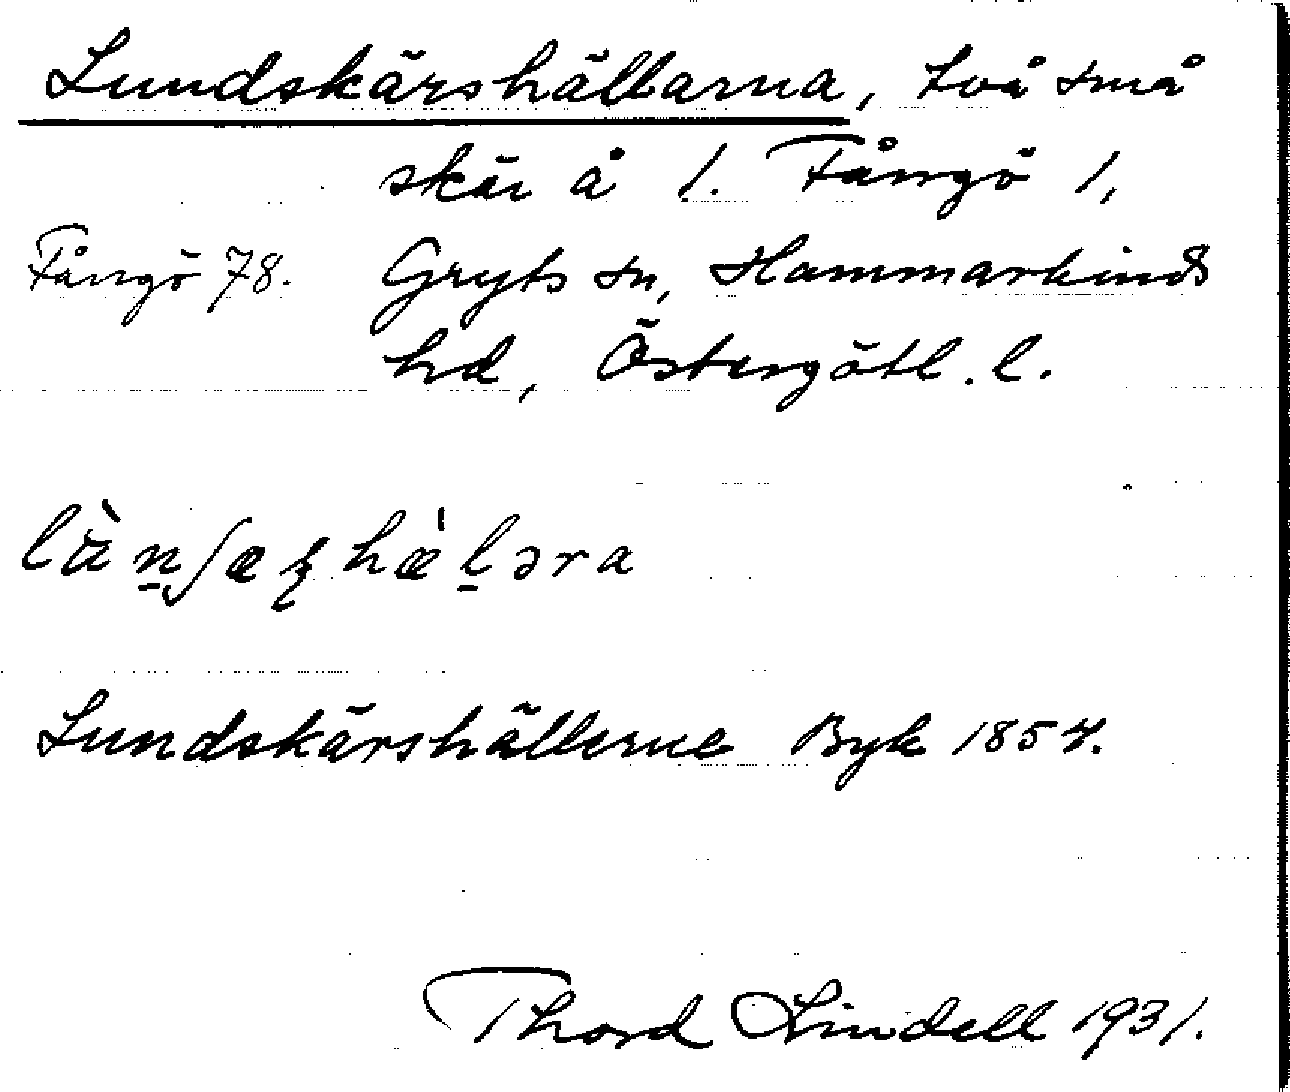 Lundskärshällarna, två små
skär å l. Fångö 1,
Fångö 78. Gryts sn, Hammarkinds
hd, Östergötl. l.
lùn̠ʃæʂhæ̀l̠əra
Lundskärshällerne Byk 1857.
Thord Lindell 1931.